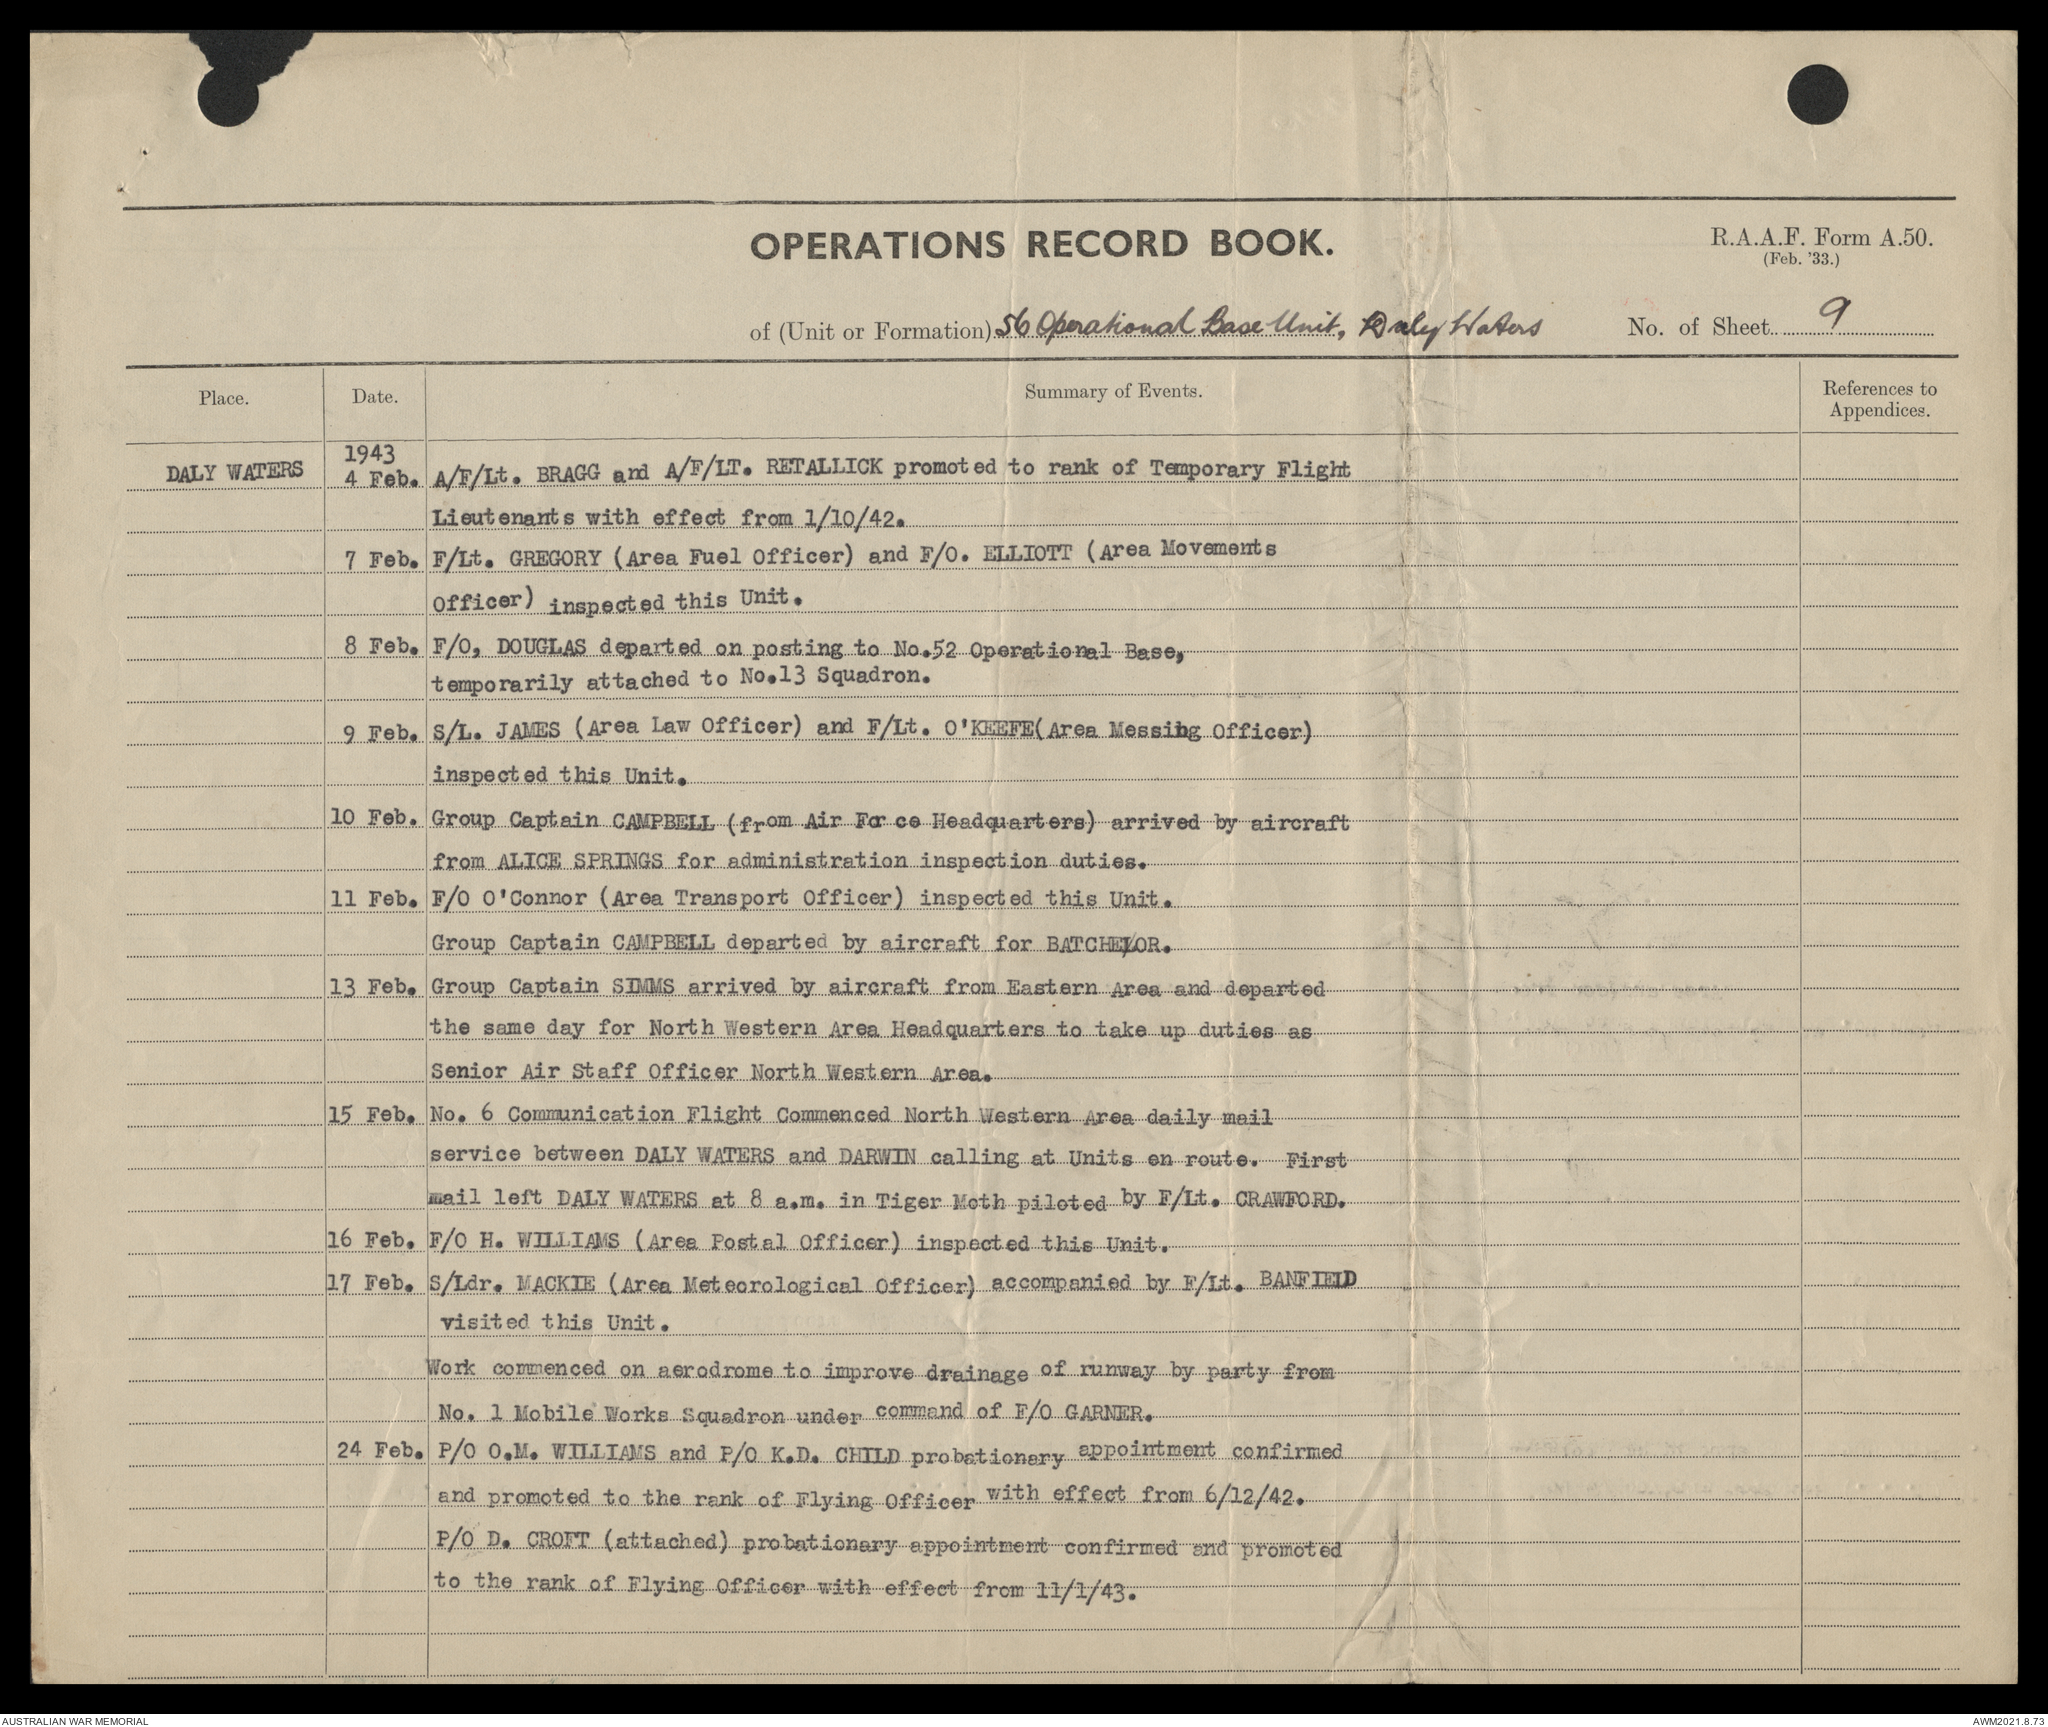 OPERATIONS RECORD BOOK.
R.A.A.F. Form A.50.
(Feb. '33.)
of (Unit or Formation) 56 Operational Base Unit, Daly Waters
No. of Sheet 9
Place.
Date.
Summary of Events.
References to
Appendices.
1943
DALY WATERS 4 Feb. A/F/Lt. BRAGG and A/F/LT. RETALLICK promoted to rank of Temporary Flight
Lieutenants with effect from 1/10/42.
7 Feb. F/Lt. GREGORY (Area Fuel Officer) and F/O. ELLIOTT (Area Movements
Officer) inspected this Unit.
8 Feb. F/O, DOUGLAS departed on posting to No.52 Operational Base,
temporarily attached to No.13 Squadron.
9 Feb. S/L. JAMES (Area Law Officer) and F/Lt. O'KEEFE(Area Messing Officer)
inspected this Unit.
10 Feb. Group Captain CAMPBELL (from Air Force Headquarters) arrived by aircraft
from ALICE SPRINGS for administration inspection duties.
11 Feb. F/O O'Connor (Area Transport Officer) inspected this Unit.
Group Captain CAMPBELL departed by aircraft for BATCHELOR.
13 Feb. Group Captain SIMMS arrived by aircraft from Eastern Area and departed
the same day for North Western Area Headquarters to take up duties as
Senior Air Staff Officer North Western Area.
15 Feb. No. 6 Communication Flight Commenced North Western Area daily mail
service between DALY WATERS and DARWIN calling at Units en route. First
mail left DALY WATERS at 8 a.m. in Tiger Moth piloted by F/Lt. CRAWFORD.
16 Feb. F/O H. WILLIAMS (Area Postal Officer) inspected this Unit.
17 Feb. S/Ldr. MACKIE (Area Meteorological Officer) accompanied by F/Lt. BANFIELD
visited this Unit.
Work commenced on aerodrome to improve drainage of runway by party from
No. 1 Mobile Works Squadron under command of F/O GARNER.
24 Feb. P/O O.M. WILLIAMS and P/O K.D. CHILD probationary appointment confirmed
and promoted to the rank of Flying Officer with effect from 6/12/42.
P/O D. CROFT (attached) probationary appointment confirmed and promoted
to the rank of Flying Officer with effect from 11/1/43.
AUSTRALIAN WAR MEMORIAL
AWM2021.8.73